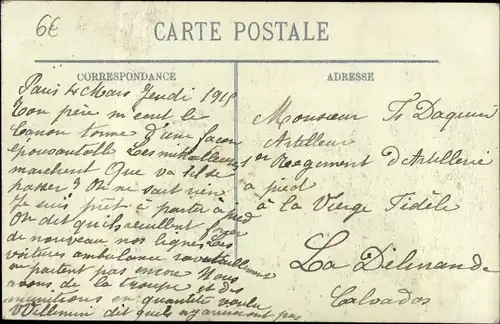 6€
CARTE POSTALE
CORRESPONDANCE
Paris 4 Mars Jeudi 1915
Ton père m'écrit le
Canon tonne d'une façon
épouvantable Les mitrailleuses
marchent Que va-t-il se
passer? On ne sait rien
Je suis prêt à partir à pied
On dit qu'ils veuillent forcer
de nouveau nos lignes Les
voitures ambulance
ne partent pas encore Nous
avons de la troupe et des
munitions en quantité voulu
Villemin dit qu'ils n'y arriveront pas
ADRESSE
Monsieur Fs Daquin
Artilleur
1er Reagement d'Artillerie
à pied
à la Vierge Fidèle
La Délivrande
Calvados